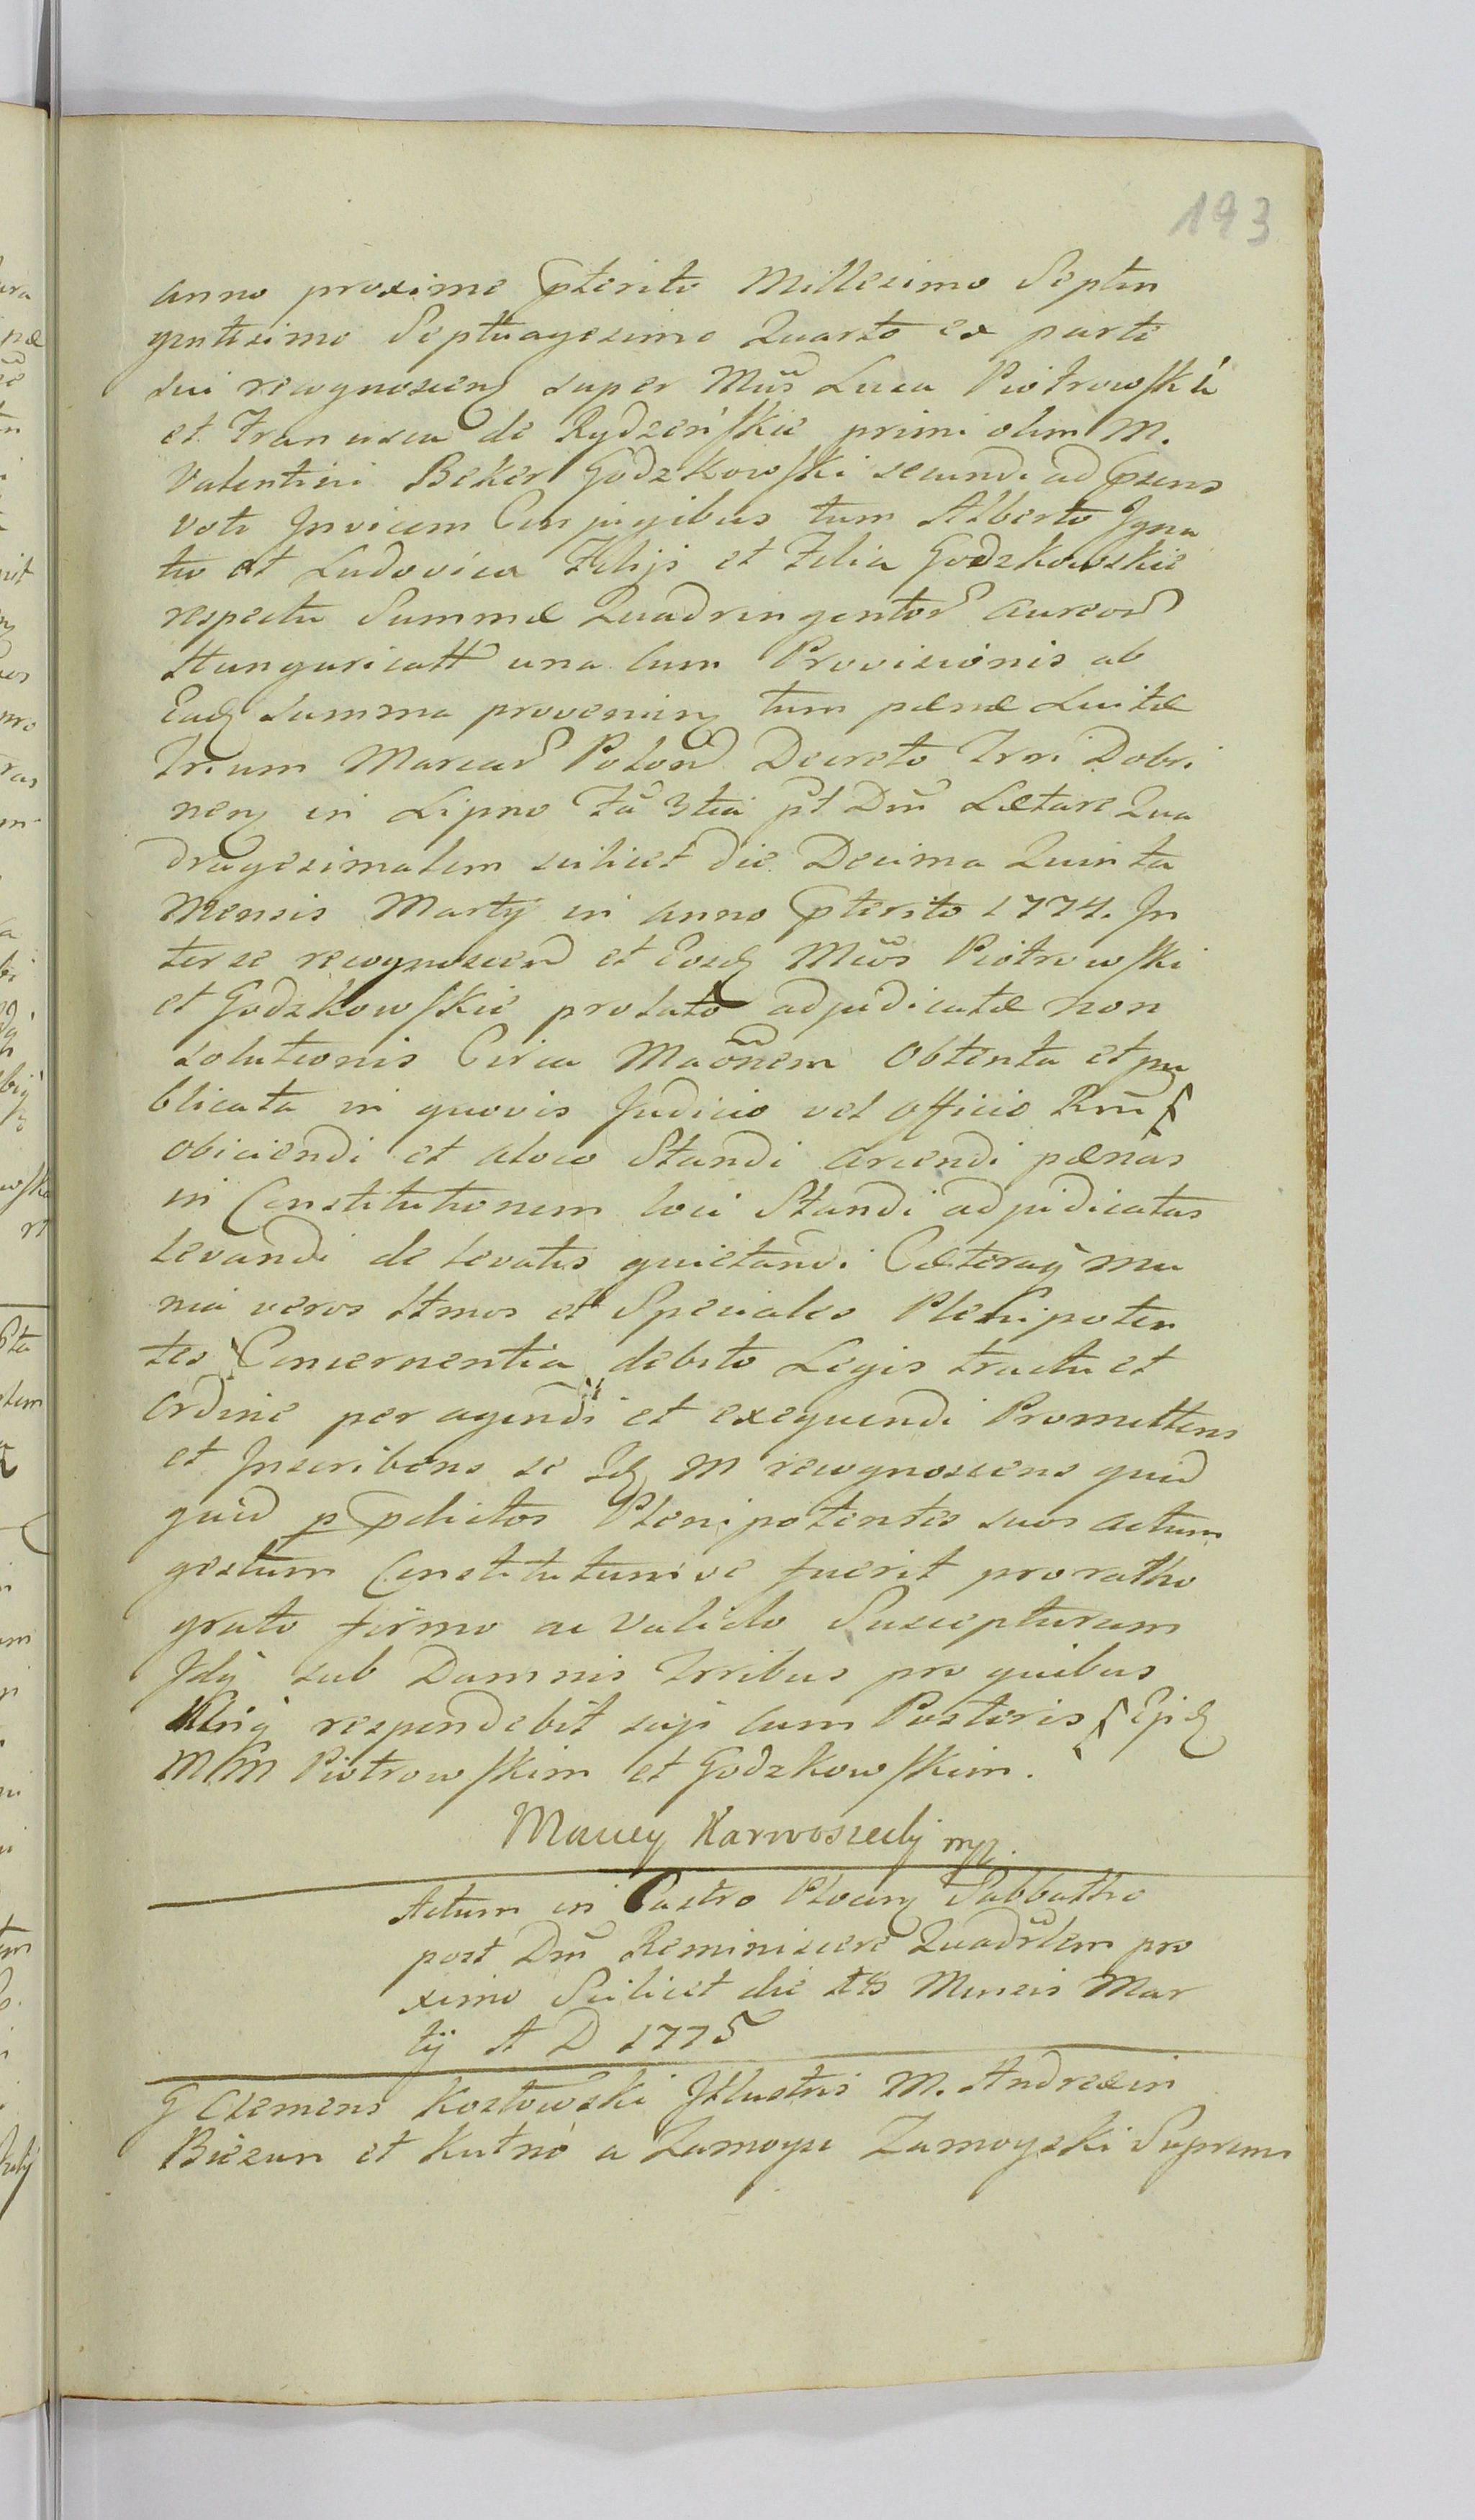 193
anno proxime pterito Millesimo Septin
gentesimo Septuagesimo Quarto ex parte
sui recognoscen super Mcis Luca Piotrowski
et Francisca de Rydzeńskie primi olim M.
Valentini Beker Godzkowski secundi ad psens
voti Invicem Conjugibus tum Alberto Igna
tio et Ludovica Filijs et Filia Godzkowskie
respectu Summæ Quadringentor aureor
Hungaricall una cum Provisionis ab
Eadq summa provenien tum pænæ Luitæ
Trium Marcar Polon Decreto Trri Dobri
nen in Lipno Fa 3tia pt Dm Lætare Qua
dragesimalem scilicet die Decima Quinta
Mensis Martij in anno pterito 1774. In
ter se recognoscen et Eosq Mcos Piotrowski
et Godzkowskie prolato adjudicatæ non
solutionis Circa Maonem Obtenta et pu
blicata in quovis Judicio vel Officio Rni
obiciendi et aloco Standi arcendi pænas
in Constitutionem loci Standi adjudicatas
levandi de levatis quietandi Cæteraq mu
nia veros Ittmos et Speciales Plenipoten
tes Concernentia debito Legis tractu et
ordine peragendi et exequendi Promittens
et Inscribens se Idq M recognoscens quid
quid p pdictos Plenipotentes suos actum
gestum Constitutumve fuerit pro ratho
grato firmo ac valido Suscepturum
Idq sub Damnis Trribus pro quibus
respondebit suji cum Posteris Ejsd
MM Piotrowskim et Godzkowskim.
Maciey Karwosiecky mp.
Actum in Castro Plocen Sabbatho
post Dm Reminiscere Quadrlem pro
ximo Scilicet die 18 Mensis Mar
tij A D 1775
G Clemens Kozłowski Illustris M. Andreæ in
Biezun et Kutno a Zamoyse Zamoyski Suprem